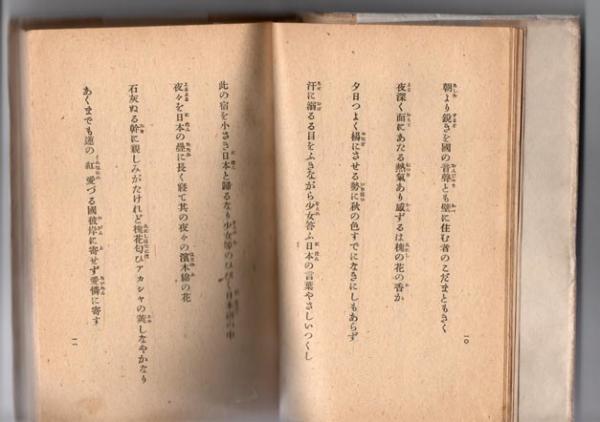 朝より鋭きを國の音聲とも壁に住む者のこだまともきく
夜深く面にあたる熱氣あり感ずるは槐の花の香か
夕日つよく楊にさせる勢に秋の色すでになきにしもあらず
汗に溺るる目をふきながら少女答ふ日本の言葉やさしいつくし
一〇
此の宿を小さき日本と歸るなり少女等の
夜々を日本の疊に長く寝て其の夜々の濱木綿の花
石灰ぬる幹に親しみがたけれど槐花匂ひアカシヤの莢しなやかなり
あくまでも蓮の紅愛づる國彼岸に寄せず愛憐に寄す
一一